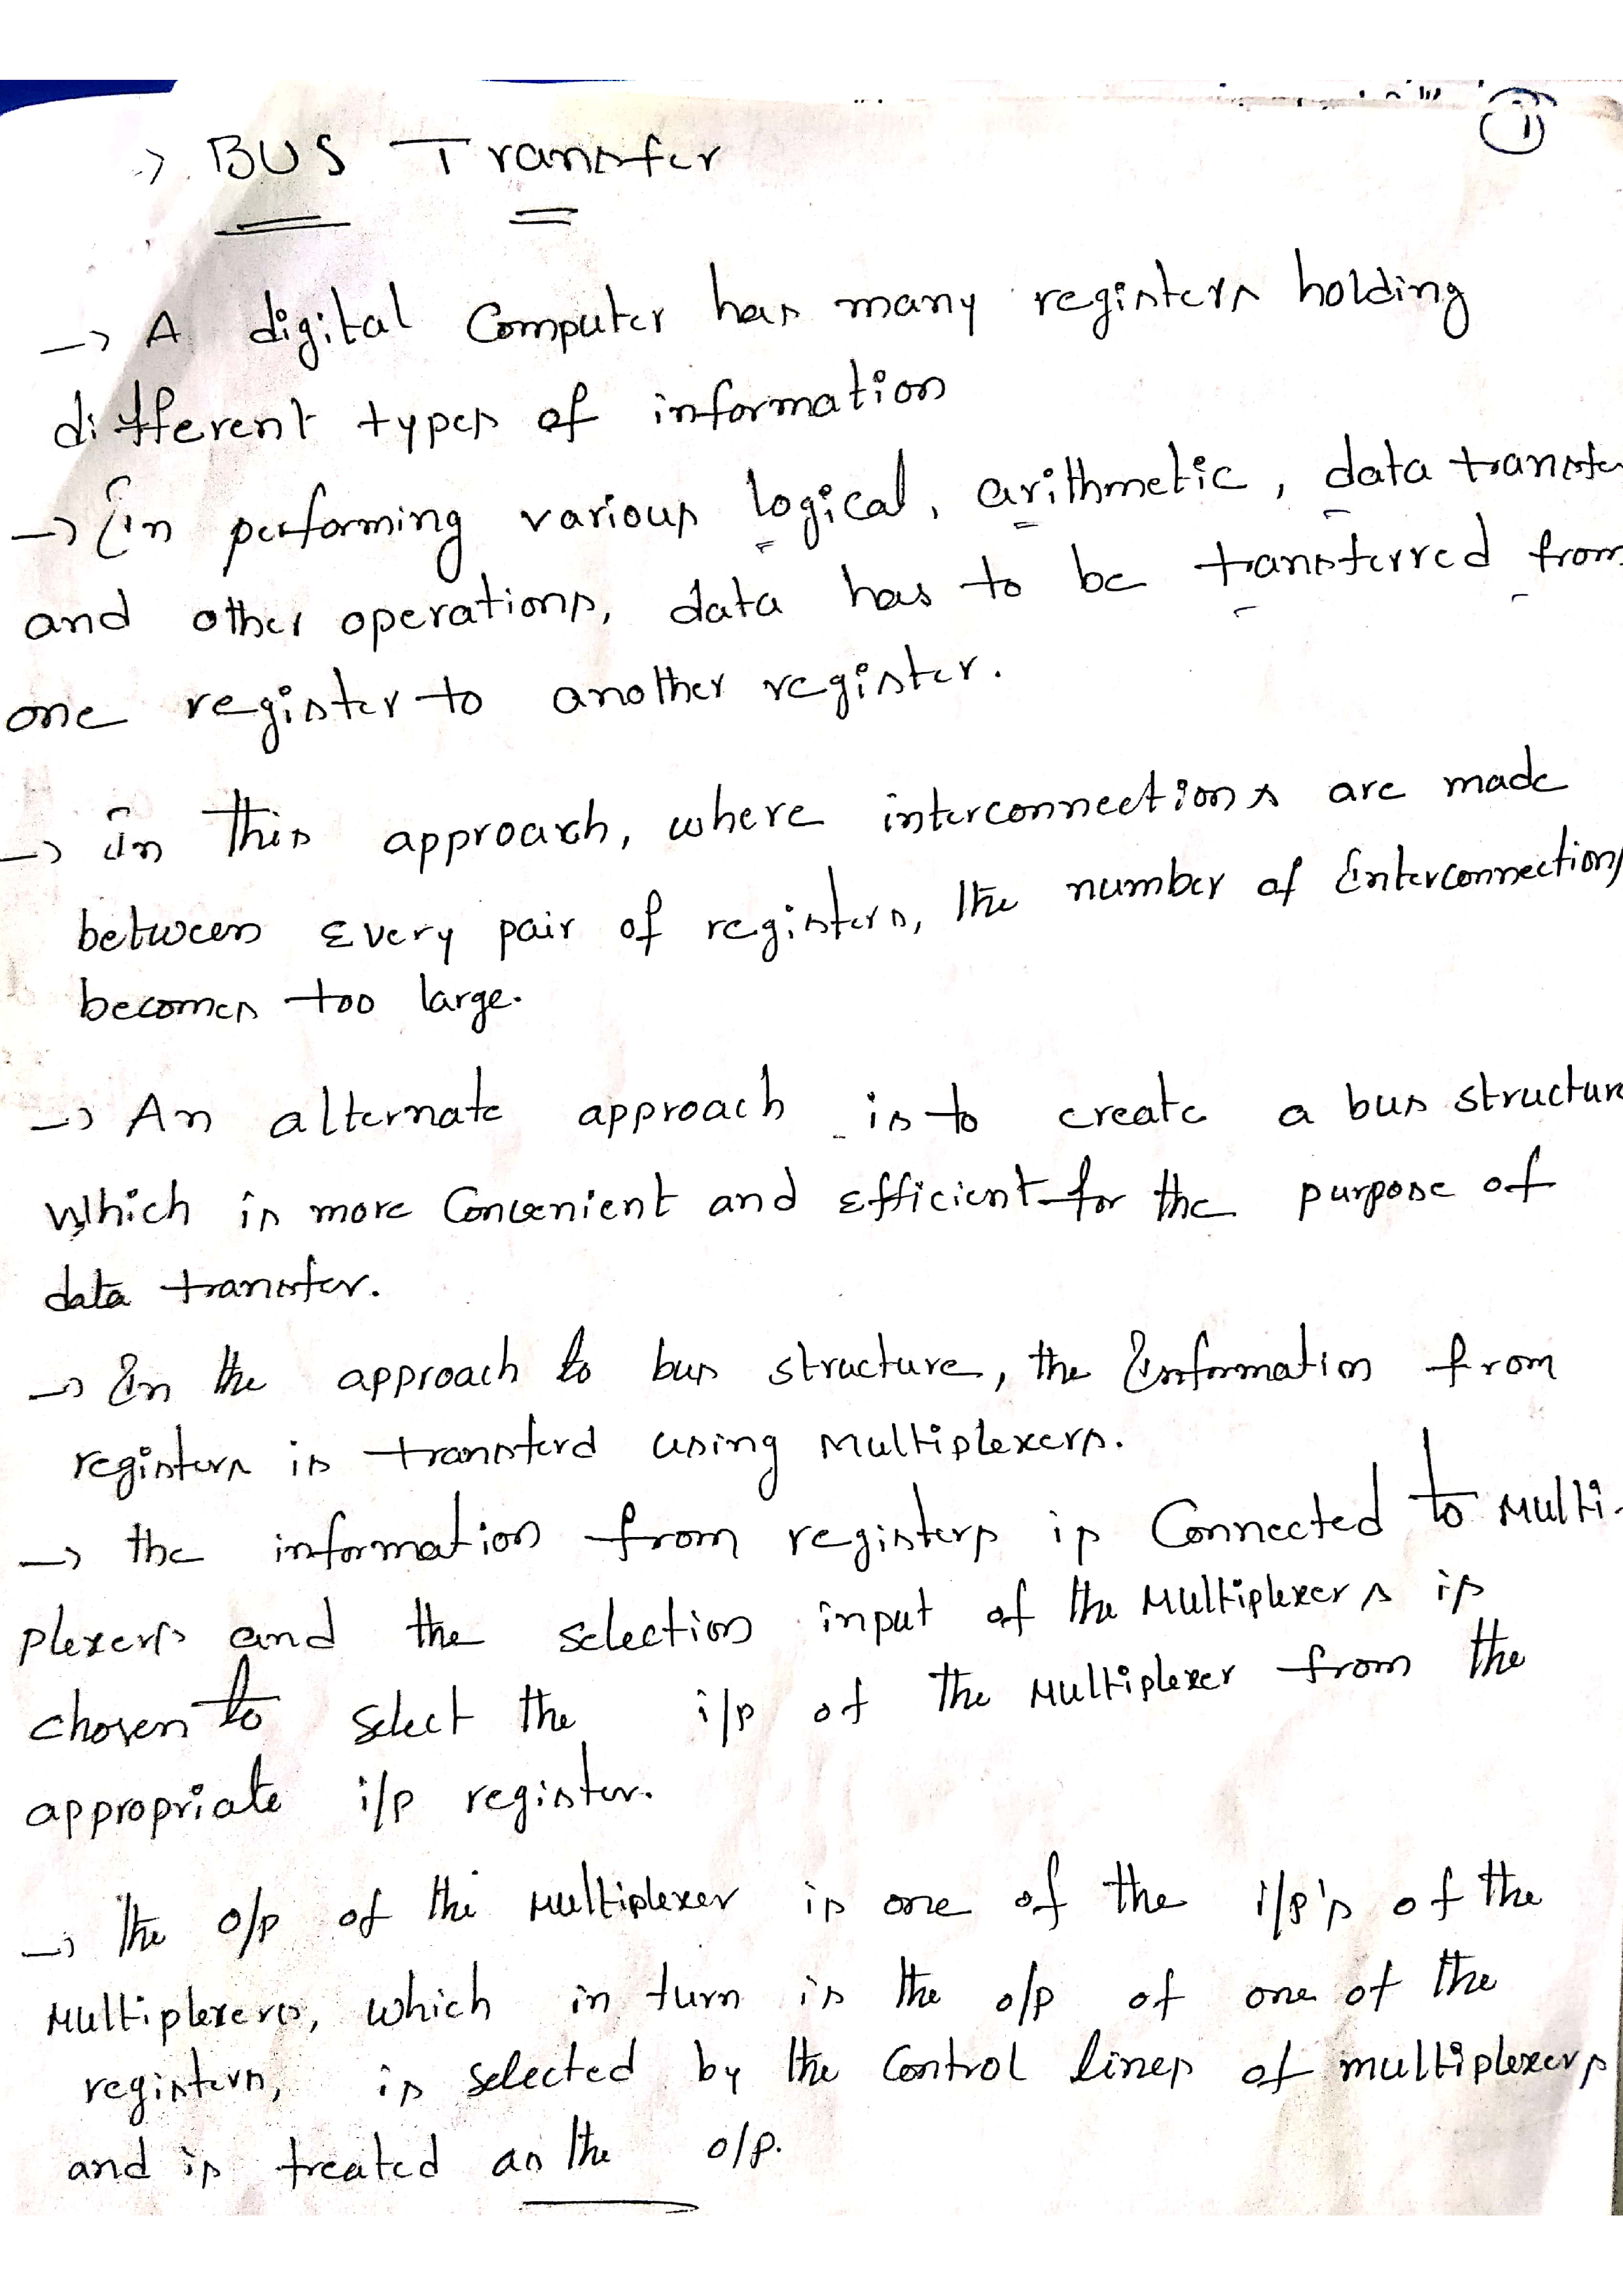 ①
→ BUS Transfer
→ A digital Computer has many registers holding
different types of information
→ In performing various logical, arithmetic, data transfe
and other operations, data has to be transferred from
one register to another register.
→ In this approach, where interconnections are made
between Every pair of registers, the number of Interconnections
becomes too large.
→ An alternate approach is to create a bus structure
Which is more Convenient and Efficient for the purpose of
data transfer.
→ In the approach to bus structure, the Information from
registers is transferd using Multiplexers.
→ the information from registers is Connected to Multi-
plexers and the selection input of the Multiplexers is
chosen to select the i/p of the Multiplexer from the
appropriate i/p register.
→ The o/p of the Multiplexer is one of the i/p's of the
Multiplexers, which in turn is the o/p of one of the
registers, is selected by the Control lines of multiplexers
and is treated as the o/p.